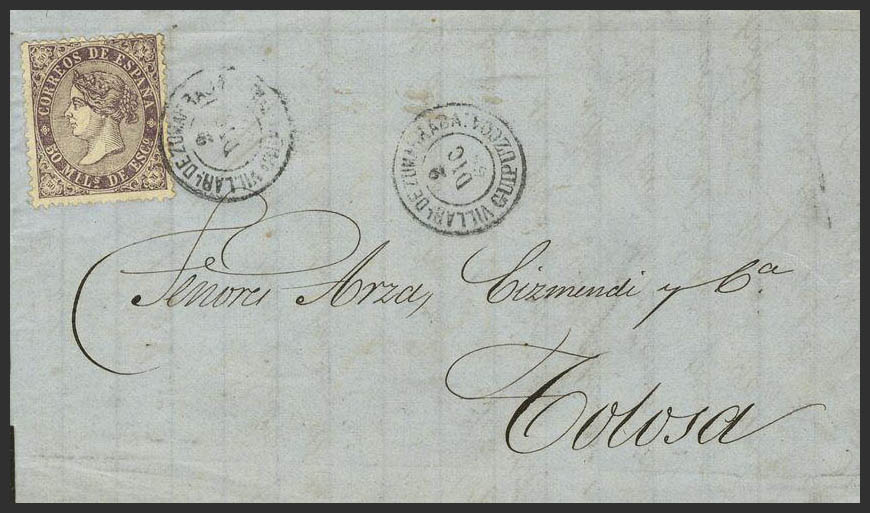 CORREOS DE ESPAÑA
50 MILS. DE ESCO.
VILLARL. DE ZUMARRAGA.
VILLARL. DE ZUMARRAGA. GUIPUZCOA
DIC
Señores Arza, Eizmendi y Cª.
Tolosa